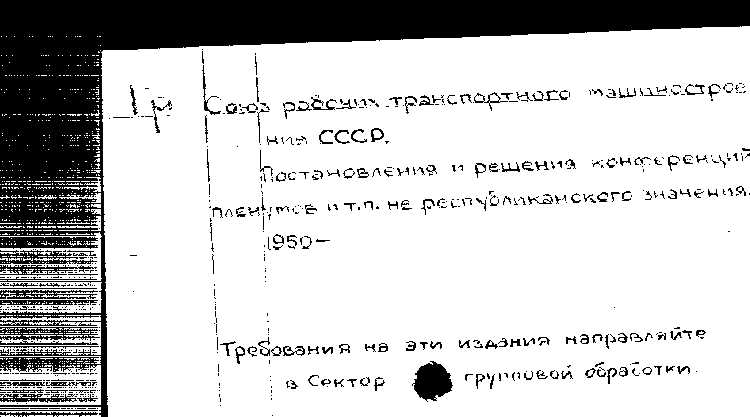 1р Союз рабочих транспортного машинострое
ния СССР.
Постановления и решения конференций
пленумов и т.п. не республиканского значения.
1950-
Требования на эти издания направляйте
в Сектор групповой обработки.